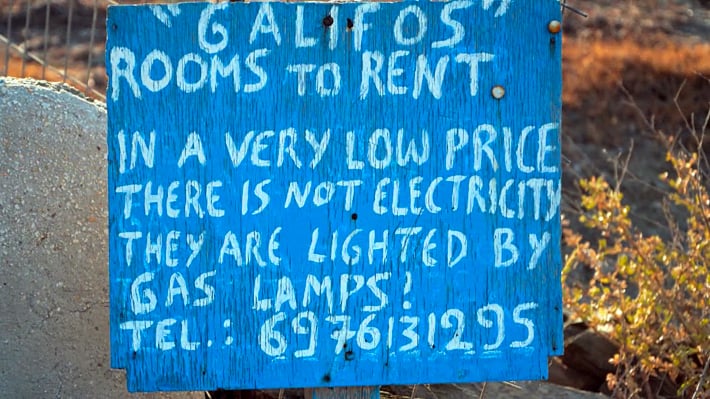 "GALIFOS"
ROOMS TO RENT
IN A VERY LOW PRICE
THERE IS NOT ELECTRICITY
THEY ARE LIGHTED BY
GAS LAMPS!
TEL.: 6976131295